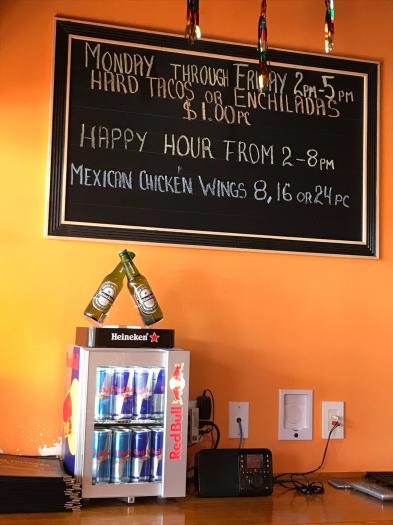 MONDAY THROUGH FRIDAY 2PM-5PM
HARD TACOS OR ENCHILADAS
$1.00PC
HAPPY HOUR FROM 2-8PM
MEXICAN CHICKEN WINGS 8, 16 OR 24 PC
Heineken
Red Bull